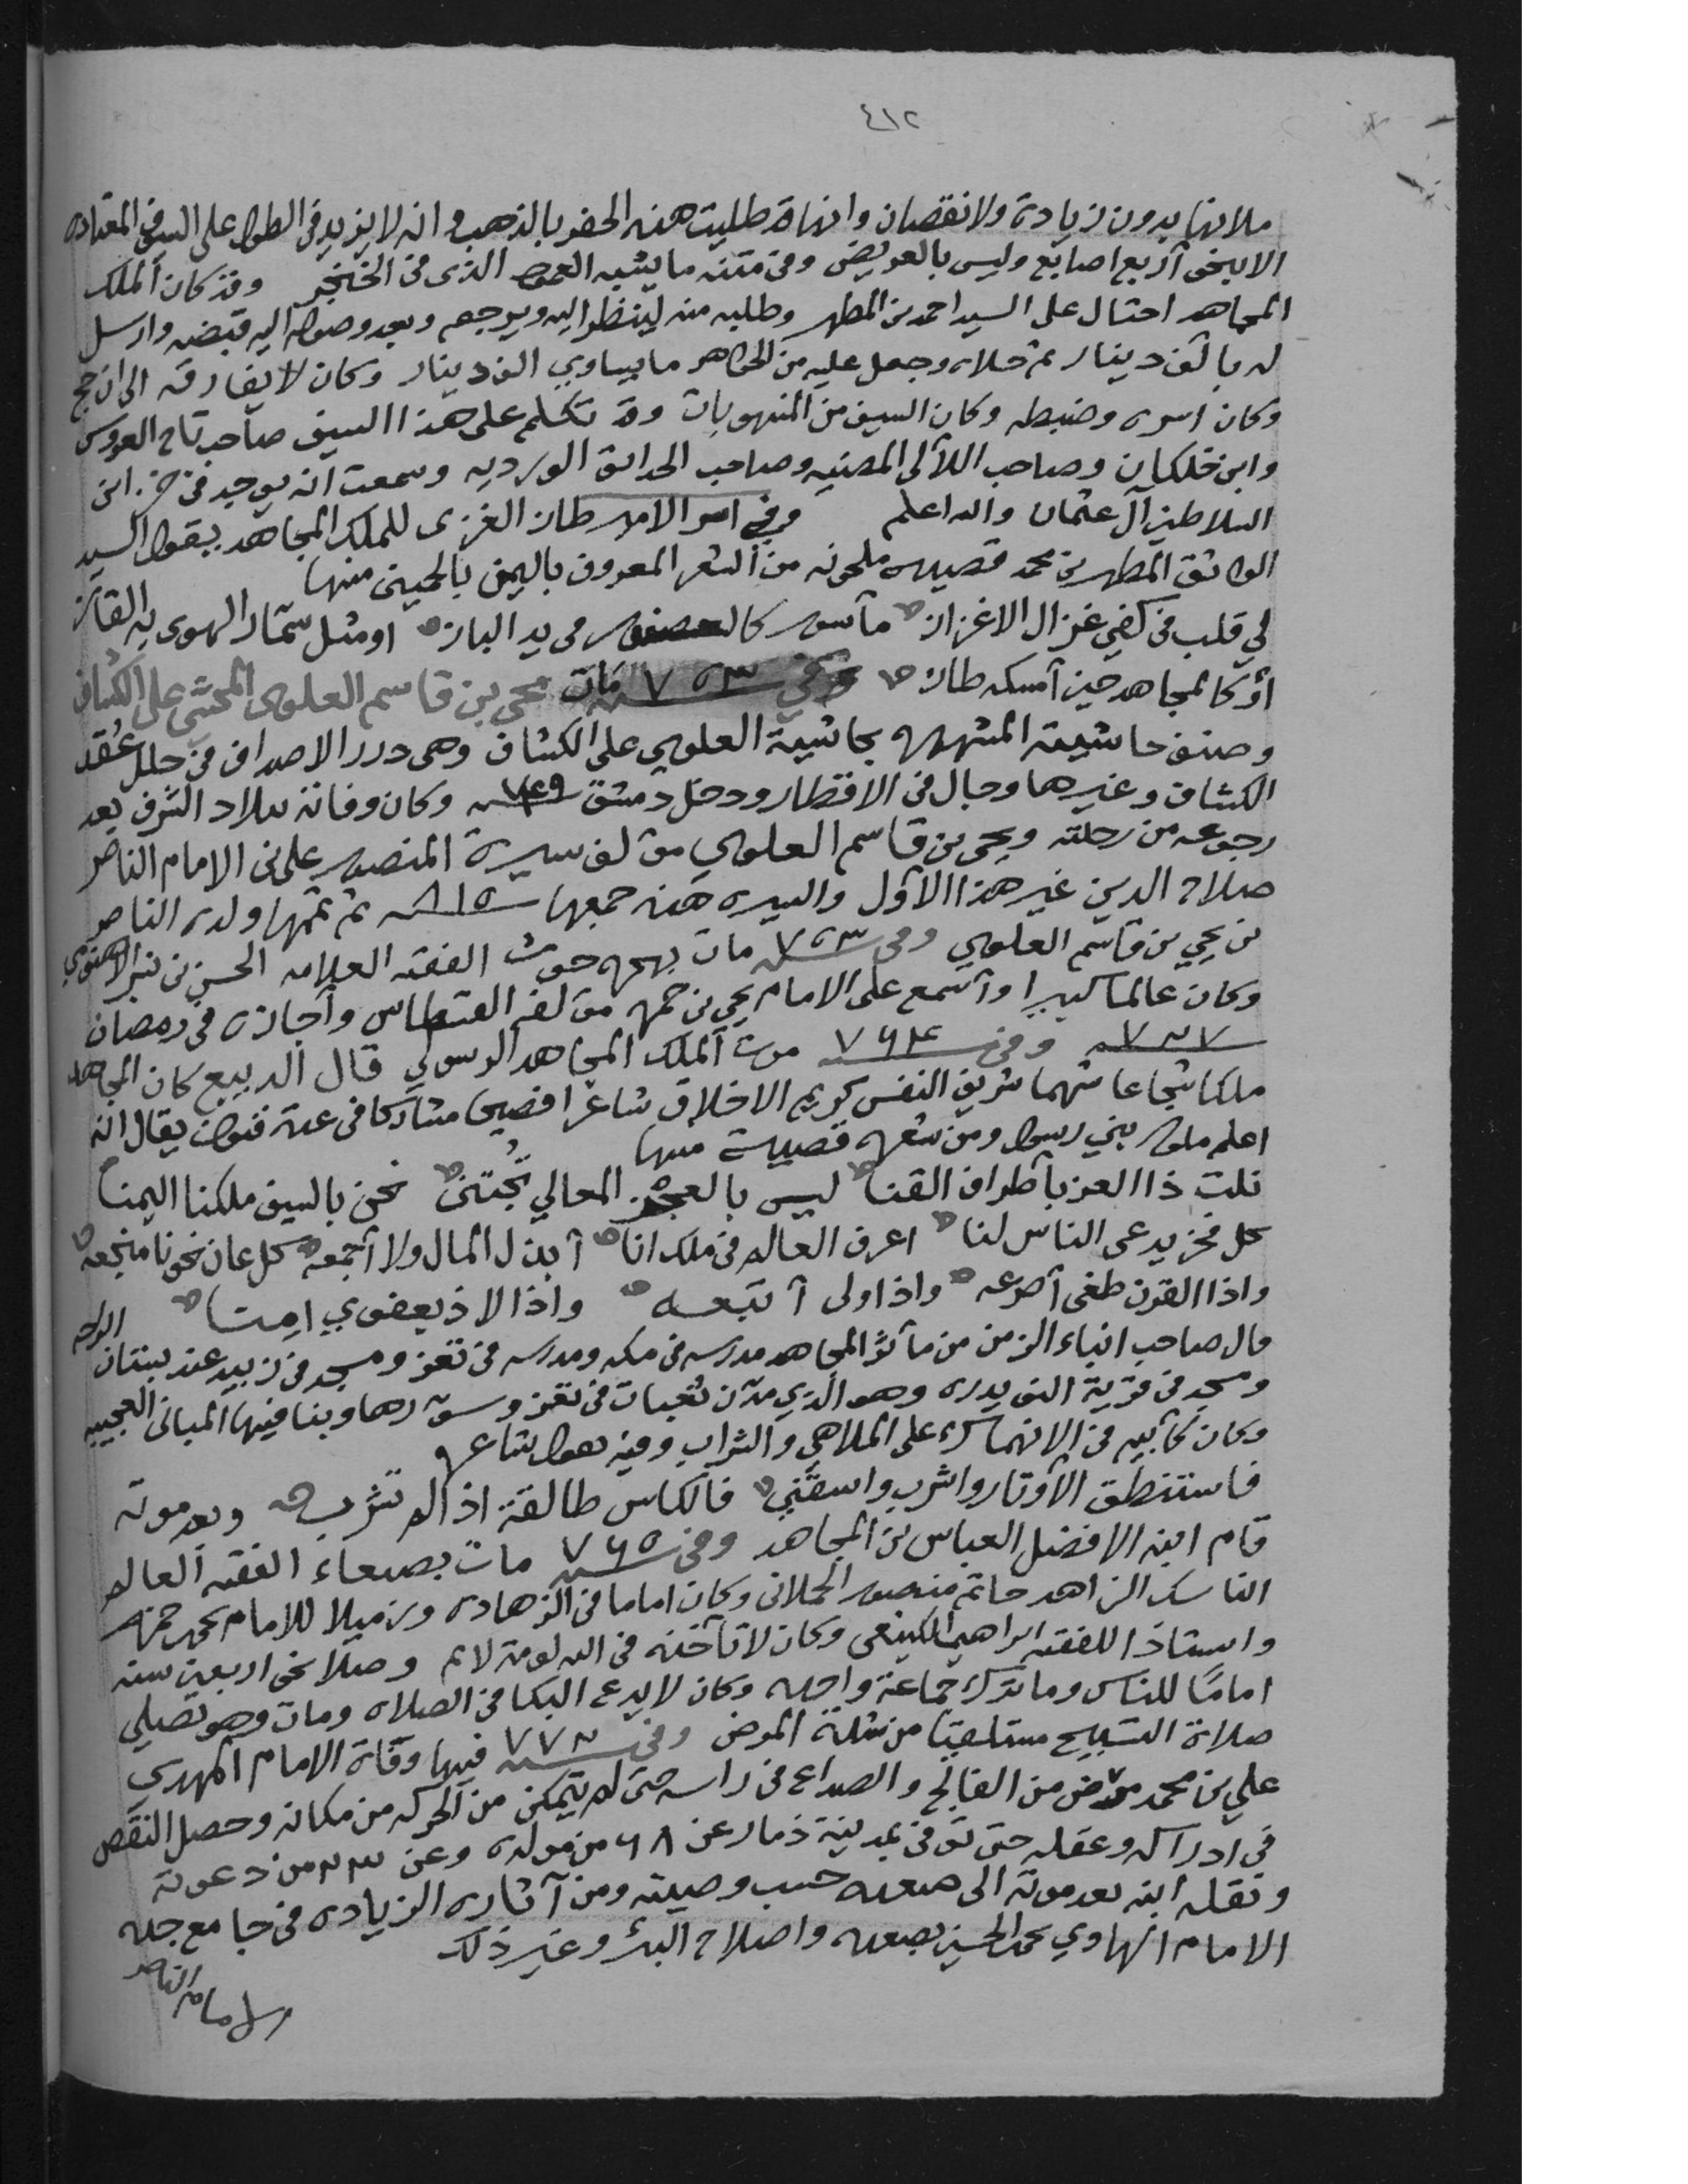 ٤١٢
ملانها بدون زيادة ولا نقصان وانها قد طليت هذه الحفر بالذهب وانه لا يزيد في الطول على السيف المعتاده
الا بنحو أربع اصابع وليس بالعريض وفي متنه ما يشبه العمود الذي في الخنجر وقد كان الملك
المجاهد احتال على السيد احمد بن المطهر وطلبه منه لينظر اليه ويرجعه وبعد وصوله اليه قبضه وارسل
له بألف دينار ثم حلاه وجعل عليه من الجواهر ما يساوي الف دينار وكان لا يفارقه الى ان حج
وكان اسره وضبطه وكان السيف من المنهوبات وقد تكلم على هذا السيف صاحب تاج العروس
وابن خلكان وصاحب اللآلى المضيه وصاحب الحدائق الورديه وسمعت انه يوجد في خزائن
السلاطين آل عثمان والله اعلم وفي اسر الامير طاز الغزى للملك المجاهد يقول السيد
الواثق المطهر بن محمد قصيده ملحونه من الشعر المعروف باليمن بالحميني منها
لي قلب في كفي غزال الاغزاز مأسور كالعصفور في يد الباز او مثل سمّار الهوى به القاز
أو كالمجاهد حين أمسكه طاز وفي سنه ٧٥٣ مات يحيى بن قاسم العلوى المحشي على الكشاف
وصنف حاشيته المشهوره بحاشية العلوي على الكشاف وهى درر الاصداف في حلل عقد
الكشاف وغيرها وجال في الاقطار ودخل دمشق سنه ٧٤٩ وكان وفاته ببلاد الشرف بعد
رجوعه من رحلته ويحيى بن قاسم العلوي مؤلف سيرة المنصور على بن الامام الناصر
صلاح الدين غير هذا الاول والسيره هذه جمعها سنه ٨١٥ ثم تممها ولده الناصر
بن يحيى بن قاسم العلوي وفى سنه ٧٥٣ مات بهجره حوث الفقيه العلامه الحسن بن
وكان عالما كبيرا وأسمع على الامام يحيى بن حمزه مؤلفه القسطاس وأجازه في رمضان
سنه ٧٣٧ وفي سنه ٧٦٤ موت الملك المجاهد الرسولي قال الديبع كان المجاهد
ملكا شجاعا شهما شريف النفس كريم الاخلاق شاعرا فصيحا مشاركا في عدة فنون يقال انه
اعلم ملوك بني رسول ومن شعره قصيدة منها
نلت ذا العز بأطراف القنا ليس بالعجز المعالي تُجتنى نحن بالسيف ملكنا اليمنا
كل فخر يدعى الناس لنا اعرف العالم في ملك انا أبذل المال ولا أجمعه كل عان نحونا منجعه
واذا القرن طغى أصرعه واذا ولى أتبعه واذا لاذ بعفوي امِنا
قال صاحب انباء الزمن من مآثر المجاهد مدرسه في مكه ومدرسه في تعز ومسجد في زبيد عند بستان الراحه
ومسجد في قرية النويدره وهو الذي مدّن ثعبات في تعز وسوّرها وبنا فيها المبانى العجيبه
وكان كأبيه في الانهماك على الملاهي والشراب وفيه يقول شاعره
فاستنطق الأوتار واشرب واسقني فالكاس طالقة اذا لم تشرب وبعد موته
قام ابنه الافضل العباس بن المجاهد وفي سنه ٧٦٥ مات بصنعاء الفقيه العالم
الناسك الزاهد حاتم منصور الحملاني وكان اماما في الزهاده وزميلا للامام يحيى حمزه
واستاذا للفقيه ابراهيم الكينعى وكان لا تأخذه في الله لومة لائم وصلا نحو اربعين سنه
امامًا للناس وما ترك جماعة واحده وكان لا يدع البكا في الصلاه ومات وهو يصلي
صلاة التسبيح مستلقيا من شدة المرض وفي سنه ٧٧٣ فيها وفاة الامام المهدي
علي بن محمد مرض من الفالج والصداع في راسه حتى لم يتمكن من الحركه من مكانه وحصل النقص
في ادراكه وعقله حتى توفي بمدينة ذمار عن ٦٨ من مولده وعن ٢٣ من دعوته
ونقله ابنه بعد موته الى صعده حسب وصيته ومن آثاره الزياده في جامع جده
الامام الهادي يحيى الحسين بصعده واصلاح البئر وغير ذلك
الامام الناصر